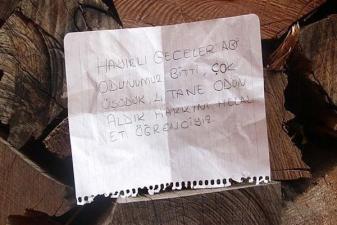 HAYIRLI GECELER ABİ
ODUNUMUZ BİTTİ, ÇOK
ÜŞÜDÜK. 4 TANE ODUN
ALDIK HAKKINI HELAL
ET ÖĞRENCİYİZ